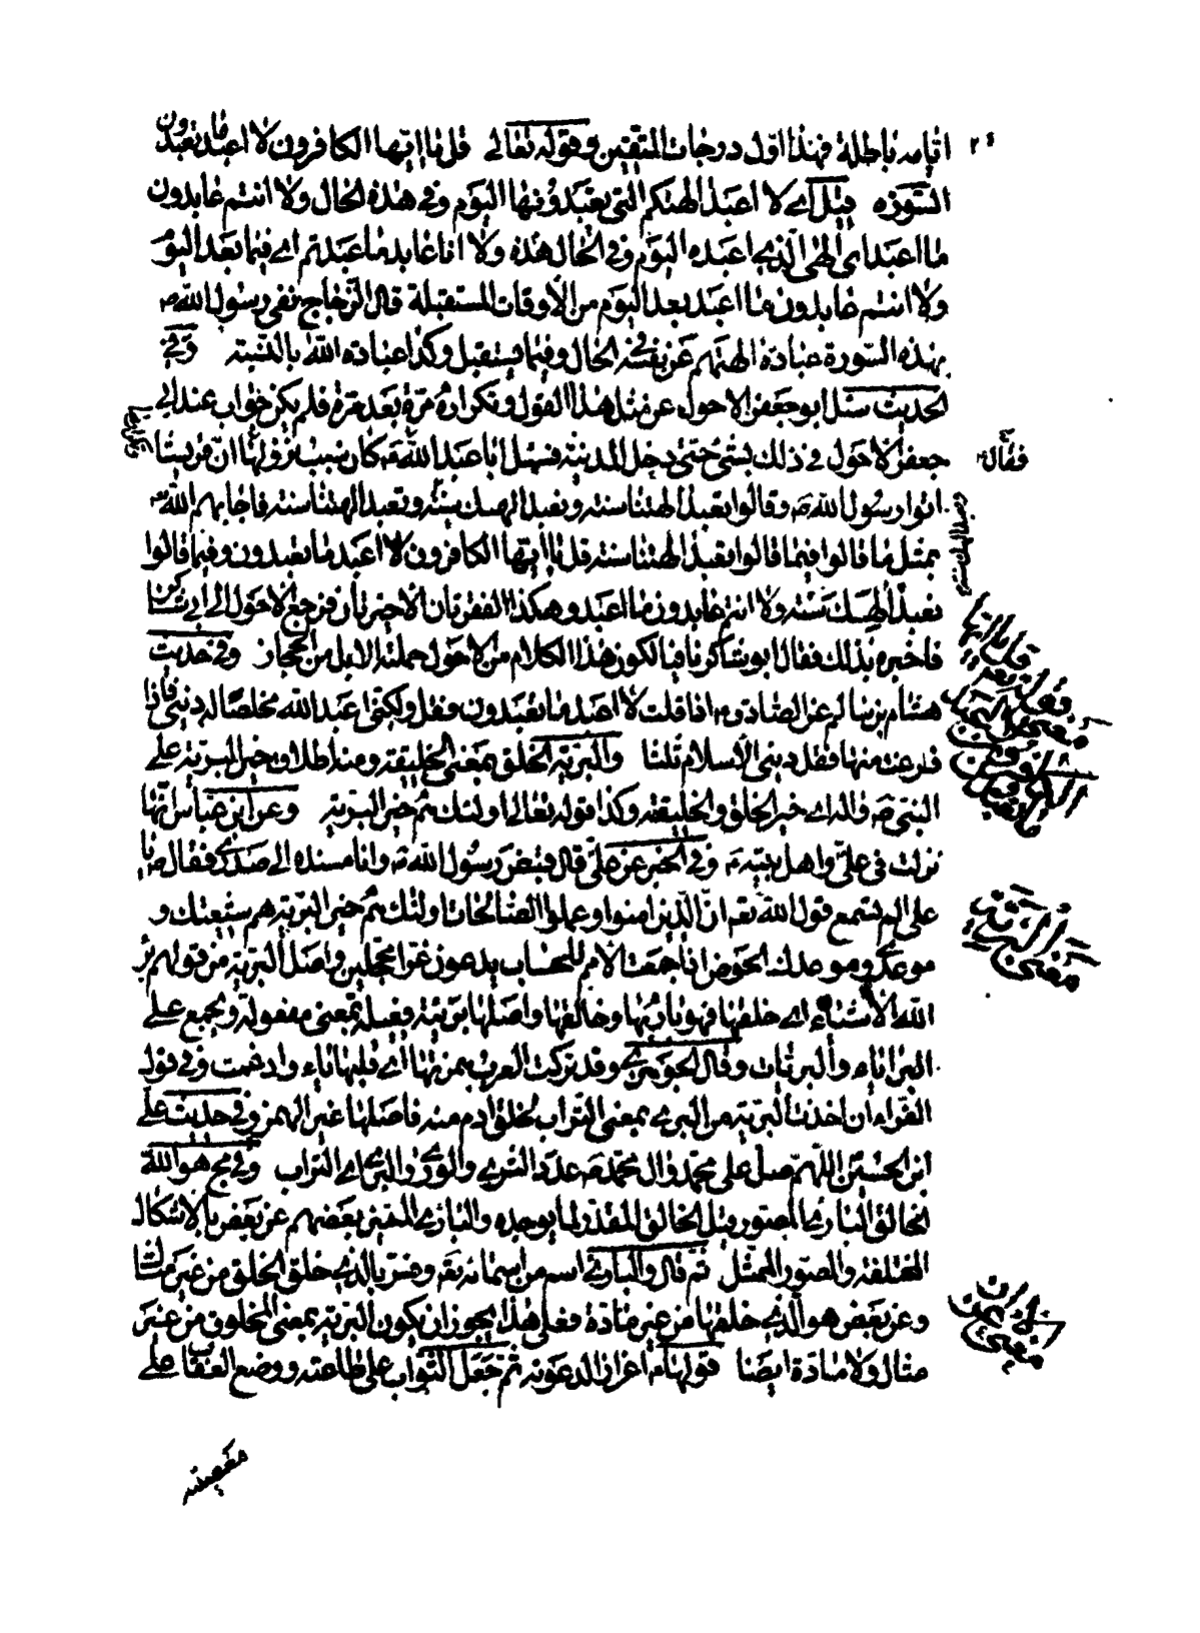 ايامه باطلة فهذا اول درجات المتقين وقوله تعالى قل يا ايها الكافرون لا اعبد ما تعبدون
السورة قيل اى لا اعبد الهتكم التى تعبدونها اليوم وفى هذه الحال ولا انتم عابدون
ما اعبد اى الهى الذى اعبده اليوم وفى الحال هذه ولا انا عابد ما عبدتم اى فيما بعد اليوم
ولا انتم عابدون ما اعبد بعد اليوم من الاوقات المستقبلة قال الزجاج نفى رسول الله ص
بهذه السورة عبادة الهتهم عن نفسه فى الحال وفيما يستقبل وكذا عبادة الله بالنسبة وفى
الحديث سئل ابو جعفر الاحول عن مثل هذا القول وتكراره مرة بعد مرة فلم يكن جواب عند ابى
جعفر الاحول فى ذلك بشئ حتى دخل المدينة فسئل ابا عبد الله ع كان سبب نزولها ان قريشا
فقال
اتوا رسول الله ص وقالوا تعبد الهتنا سنة ونعبد الهك سنة وتعبد الهتنا سنة فاجابهم الله
ونعبد الهك سنة
بمثل ما قالوا فيما قالوا تعبد الهتنا سنة قل يا ايها الكافرون لا اعبد ما تعبدون وفيما قالوا
نعبد الهك سنة ولا انتم عابدون ما اعبد وهكذا الفقرتان الاخيرتان فرجع الاحول الى ابى شاكر
فاخبره بذلك فقال ابو شاكر هذا الكلام من الاحول حملته الابل من الحجاز وفى حديث
هشام بن سالم عن الصادق ع اذا قلت لا اعبد ما تعبدون فقل ولكنى اعبد الله مخلصا له دينى فاذا
فرغت منها فقل دينى الاسلام ثلثا والبرية الخلق بمعنى الخليقة ومنه اطلاق خير البرية على
النبى ص واله اى خير الخلق والخليقة وكذا قوله تعالى اولئك هم خير البرية وعن ابن عباس انها
نزلت فى على واهل بيته ع وفى الخبر عن على قال قبض رسول الله ص وانا مسنده الى صدرى فقال يا
على الم تسمع قول الله تعالى ان الذين امنوا وعملوا الصالحات اولئك هم خير البرية هم شيعتك و
معنى البرية
موعدى وموعدك الحوض اذا جمعت الامم للحساب يدعون غرا محجلين واصل البرية من قولهم برء
الله الاشياء اى خلقها فهو بارئها وخالقها واصلها بريئة فعيلة بمعنى مفعولة ويجمع على
البرايا والبريات وقال الجوهرى وقد تركت العرب همزتها اى قلبها ياء وادغمت وفى قول
الفراء ان اخذت البرية من البرى بمعنى التراب لخلق ادم منه فاصلها غير الهمز وفى حديث على
ابن الحسين اللهم صل على محمد وال محمد ص عدد الثرى والورى والبرى اى التراب وفى مج هو الله
الخالق البارئ المصور قيل الخالق المقدر لما يوجده والبارئ المميز بعضهم عن بعض بالاشكال
المختلفة والمصور الممثل ثم قال والبارئ اسم من اسمائه تع وفسر بالذى خلق الخلق من غير مثال
وعن بعض هو الذى خلقها من غير مادة فعلى هذا يجوز ان يكون البرية بمعنى المخلوق من غير
مثال ولا مادة ايضا قولها ع اعزازا لدعوته ثم جعل الثواب على طاعته ووضع العقاب على
معصيته